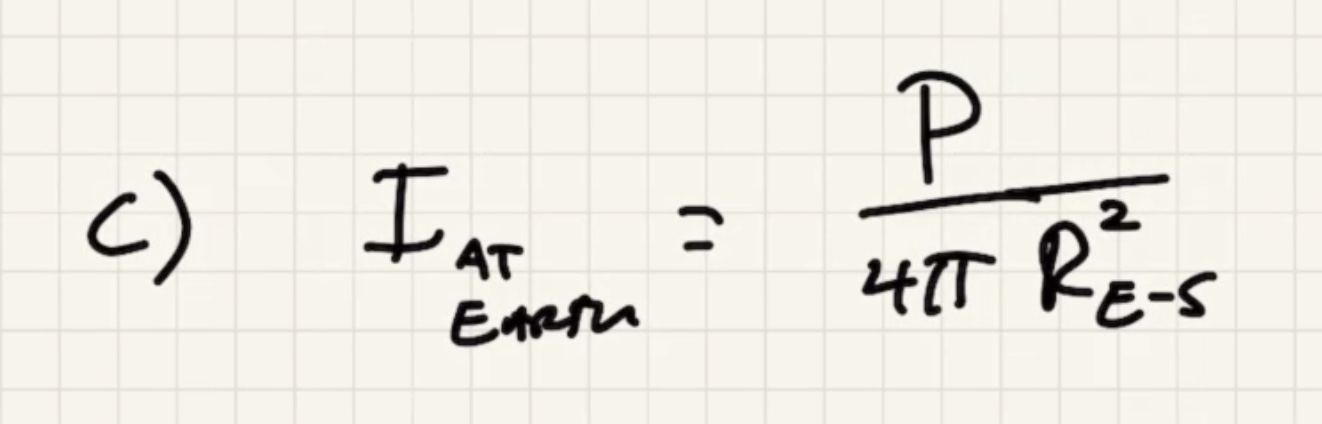 C) I_AT EARTH = P / 4π R²_E-S